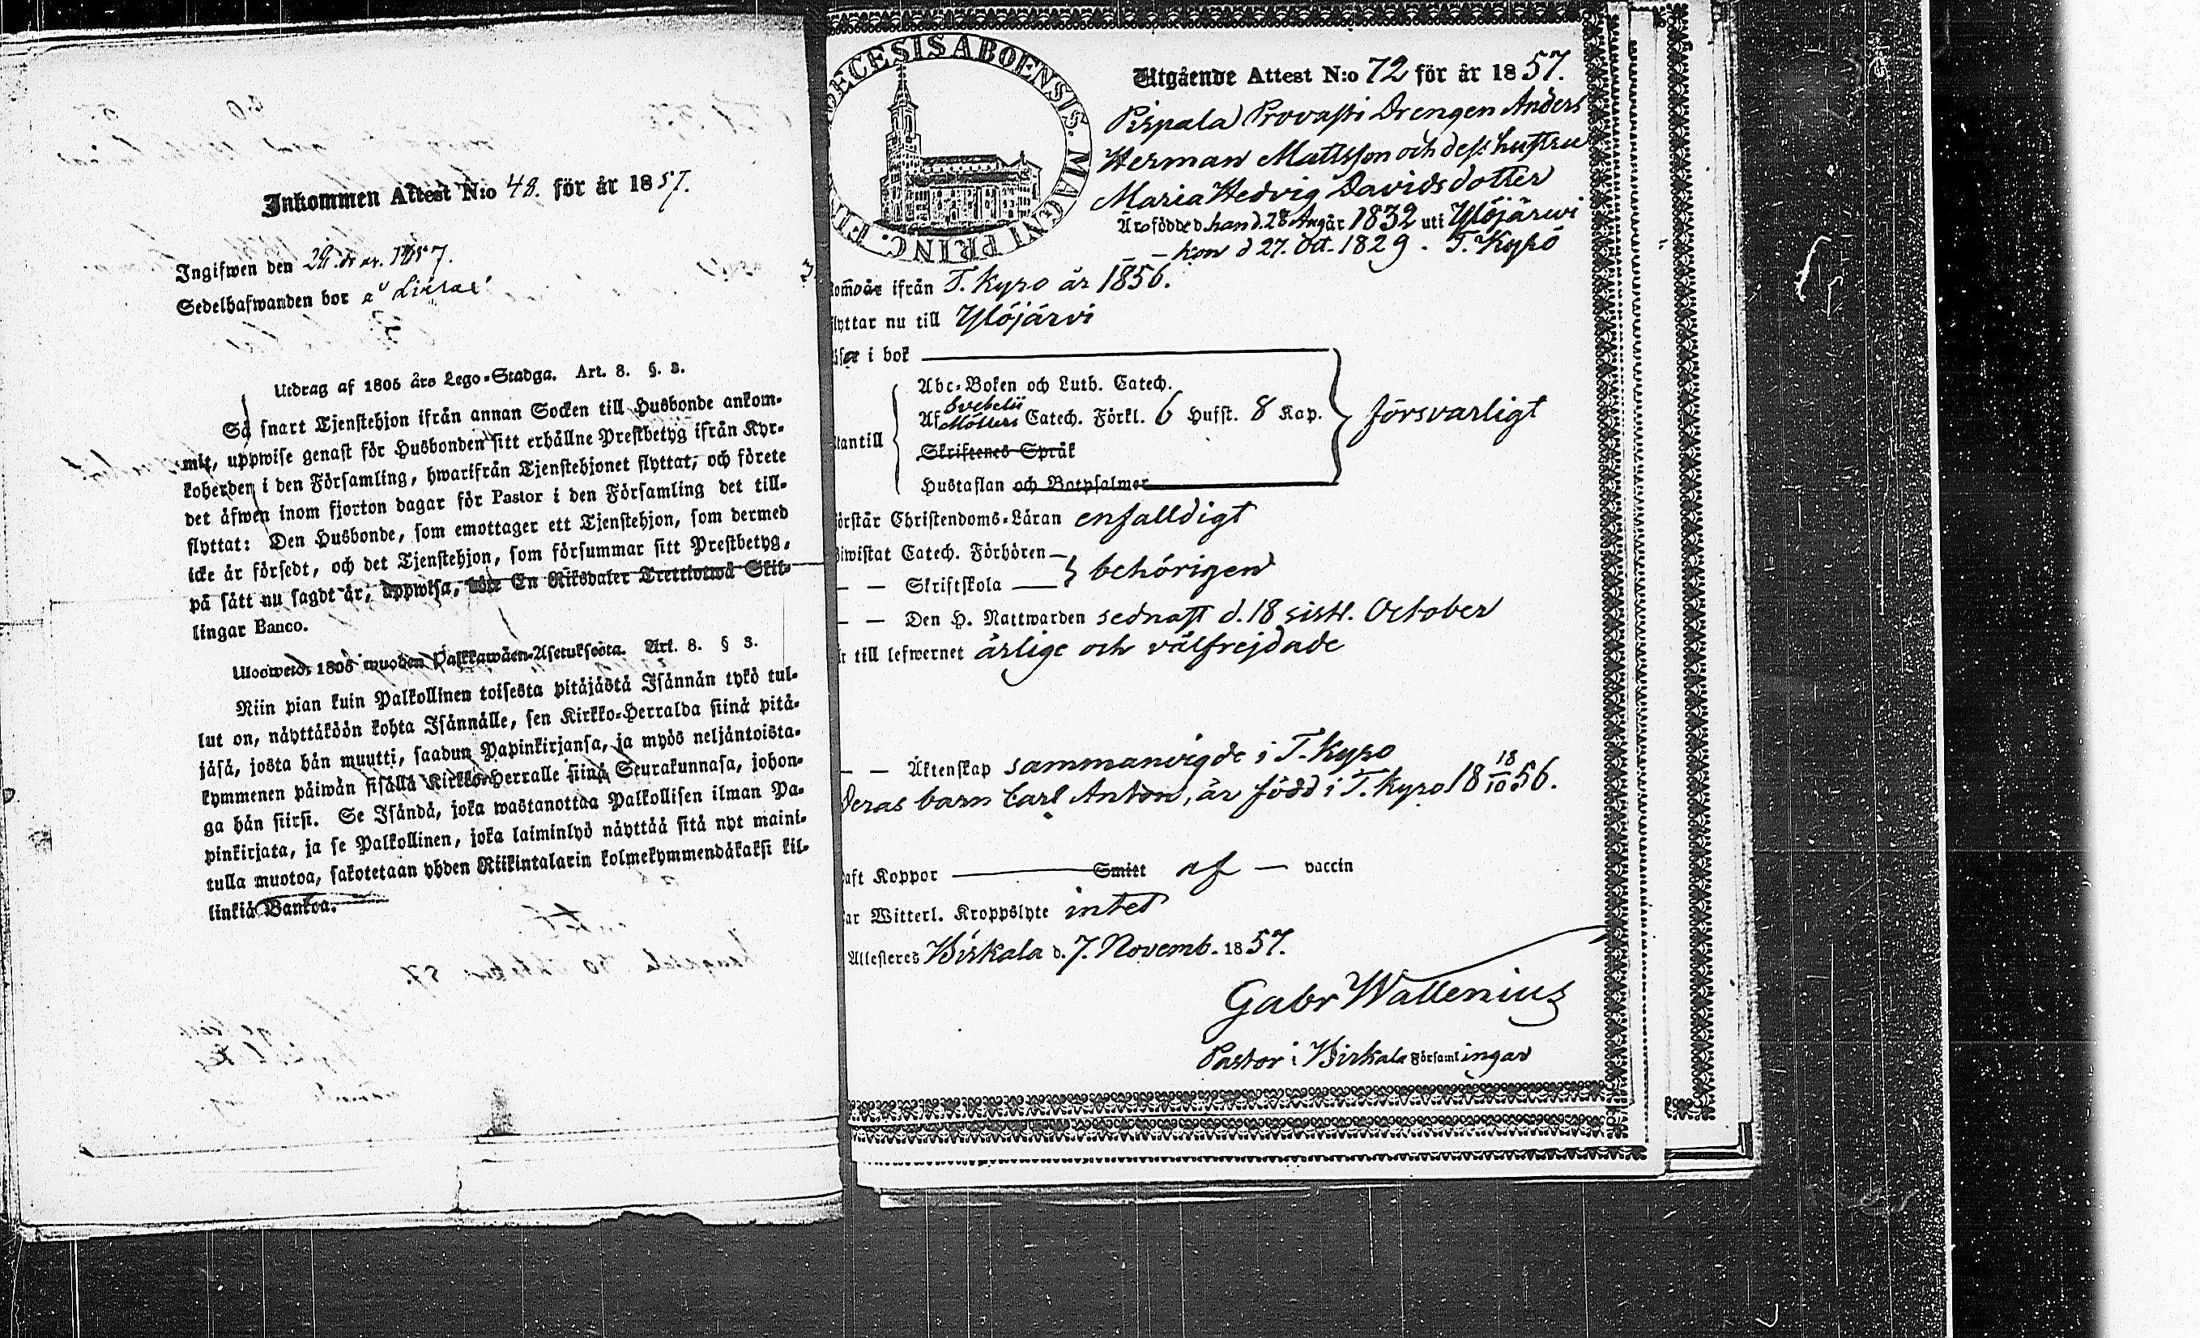 Inkommen Attest N:o 48. för år 1857.
Ingifwen den 1857.
Sedelhafwanden bor
Utdrag af 1805 års Lego-Stadga. Art. 8. §. 3.
Så snart Tjenstehjon ifrån annan Socken till Husbonde ankom-
mit, uppwise genast för Husbonden sitt erhållne Prestbetyg ifrån Kyr-
koherden i den Församling, hwarifrån Tjenstehjonet flyttat, och förete
det äfwen inom fjorton dagar för Pastor i den Församling det till-
flyttat: Den Husbonde, som emottager ett Tjenstehjon, som dermed
icke är försedt, och det Tjenstehjon, som försummar sitt Prestbetyg,
på sätt nu sagdt är, uppwisa, böte En Riksdaler Trettiotwå Skil-
lingar Banco.
Uloswedos 1805 wuoden Palkkawäen-Asetuksesta. Art. 8. § 3.
Niin pian kuin Palkollinen toisesta pitäjästä Isännän tykö tul-
lut on, näyttäköön kohta Isännälle, sen Kirkko-Herralda siinä pitä-
jäsä, josta hän muutti, saadun Papinkirjansa, ja myös neljäntoista-
kymmenen päiwän sisällä Kirkko-Herralle siinä Seurakunnasa, johon-
ga hän siirsi. Se Isändä, joka wastanottaa Palkollisen ilman Pa-
pinkirjata, ja se Palkollinen, joka laiminlyö näyttää sitä nyt maini-
tulla muotoa, sakotetaan yhden Riikintalarin kolmekymmendäkaksi kil-
linkiä Bankoa.
ECESIS ABOENSIS. MAGNI PRINC. FIN
Utgående Attest N:o 72 för år 1857.
Pispala Provasti Drengen Anders
Herman Mattsson och dess hustru
Maria Hedvig Davidsdotter
Äro födde d. han d. 28 Aug år 1832 uti Ylöjärwi
– hon d 27. Oct. 1829. T. Kyro
komne ifrån T. Kyro år 1856.
flyttar nu till Ylöjärvi
läser i bok
Abc-Boken och Luth. Catech.
Svebelii
Af Möllers Catech. Förkl. 6 Hufst. 8 Kap. försvarligt
utantill
Skriftenes Språk
Hustaflan och Botpsalmer
förstår Christendoms-Läran enfalldigt
biwistat Catech. Förhören –
– – Skriftskola – behörigen
– – Den H. Nattwarden sednast d. 18 sistl. October
är till lefwernet ärlige och välfrejdade
– – Äktenskap sammanvigde i T. Kyro
Deras barn Carl Anton, är född i T. Kyro 18 18/10 56.
haft Koppor Smitt af – vaccin
har Witterl. Kroppslyte intet
Attesteres Birkala d. 7. Novemb. 1857.
Gabr Wallenius
Pastor i Birkala Församlingar